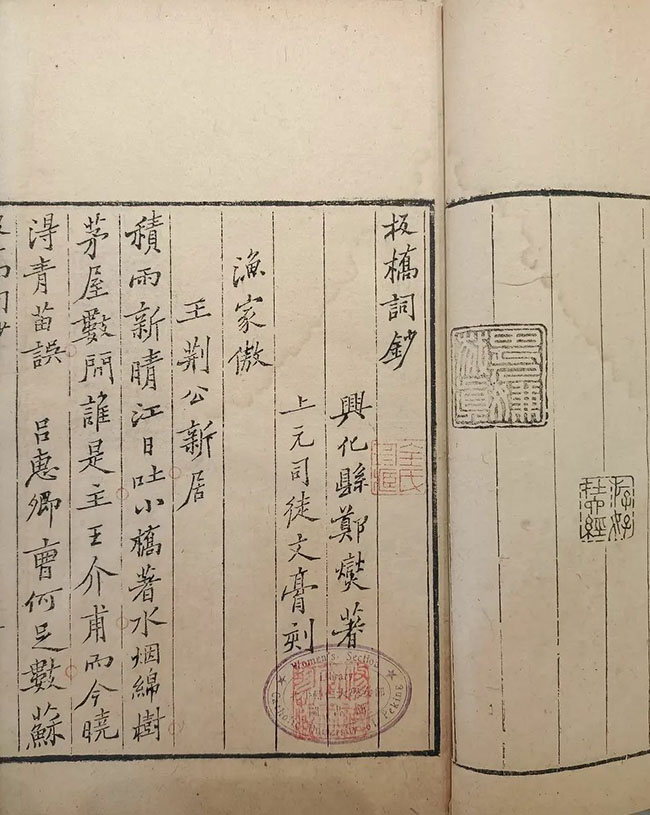 板橋詞鈔
興化縣鄭燮著
上元司徒文膏刻
漁家傲
王荊公新居
積雨新晴江日吐小橋著水烟綿樹
茅屋數間誰是主王介甫而今曉
得青苗誤 呂惠卿曹何足數蘇
Women's Section
Library
Catholic University of Peking